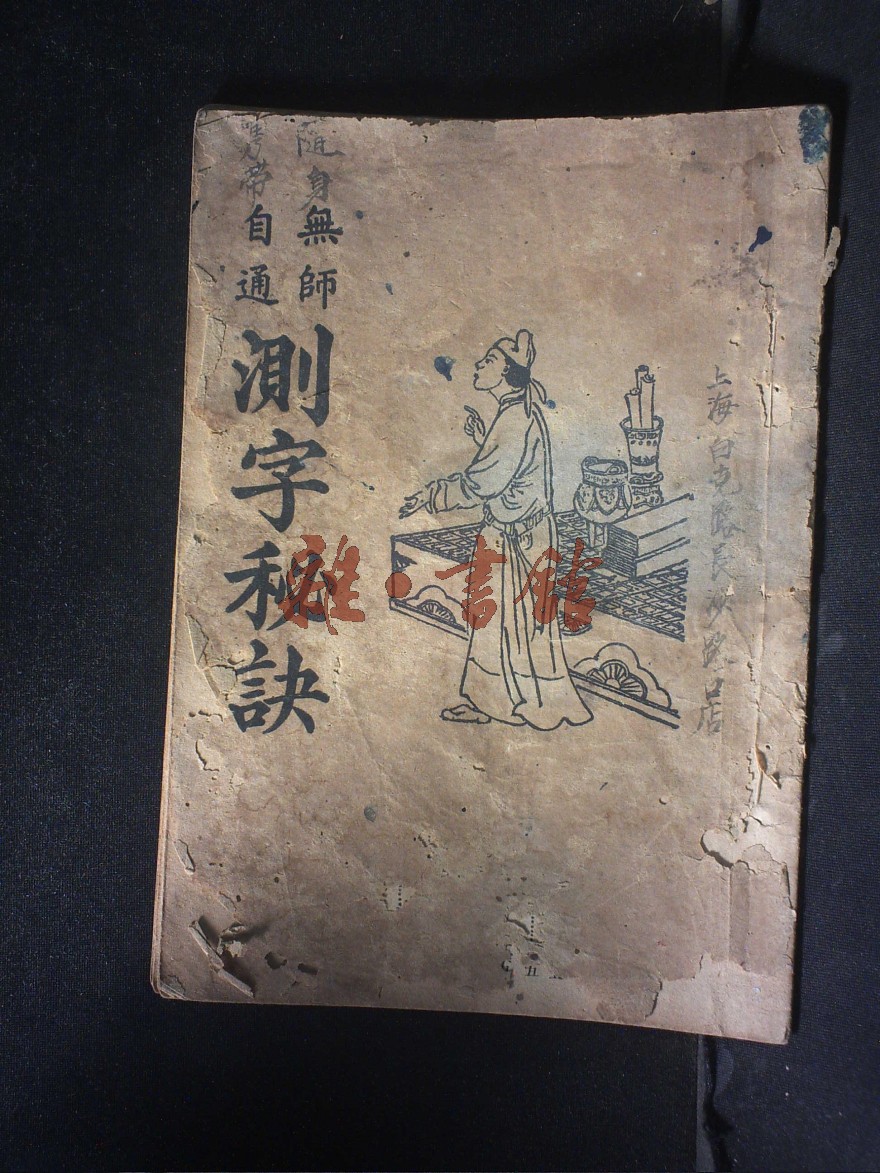 隨身
攜帶
無師
自通
測字秘訣
上海白克路長沙路口店
雅·書館
五